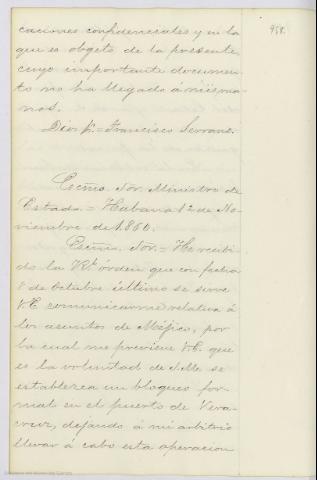 958.
caciones confidenciales y en la
que es objeto de la presente
cuyo importante documen-
to no ha llegado á mis ma-
nos.
Dios g.⁼ Francisco Serrano.
Excmo. Sor. Ministro de
Estado.= Habana 12 de No-
viembre de 1860.
Excmo. Sor.= He recibi-
do la Rl. órden que con fecha
8 de Octubre último se sirve
V.E. comunicarme relativa á
los asuntos de Méjico, por
la cual me previene V.E. que
es la voluntad de S.M. se
establezca un bloqueo for-
mal en el puerto de Vera-
cruz, dejando á mi arbitrio
llevar á cabo esta operacion